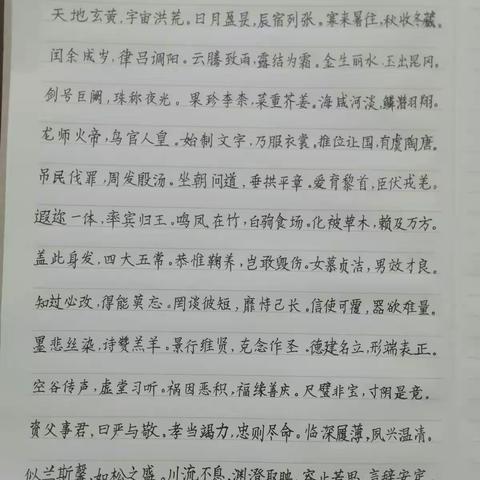 天地玄黄,宇宙洪荒。日月盈昃,辰宿列张。寒来暑往,秋收冬藏。
闰余成岁,律吕调阳。云腾致雨,露结为霜。金生丽水,玉出昆冈。
剑号巨阙,珠称夜光。果珍李柰,菜重芥姜。海咸河淡,鳞潜羽翔。
龙师火帝,鸟官人皇。始制文字,乃服衣裳。推位让国,有虞陶唐。
吊民伐罪,周发殷汤。坐朝问道,垂拱平章。爱育黎首,臣伏戎羌。
遐迩一体,率宾归王。鸣凤在竹,白驹食场。化被草木,赖及万方。
盖此身发,四大五常。恭惟鞠养,岂敢毁伤。女慕贞洁,男效才良。
知过必改,得能莫忘。罔谈彼短,靡恃己长。信使可覆,器欲难量。
墨悲丝染,诗赞羔羊。景行维贤,克念作圣。德建名立,形端表正。
空谷传声,虚堂习听。祸因恶积,福缘善庆。尺璧非宝,寸阴是竞。
资父事君,曰严与敬。孝当竭力,忠则尽命。临深履薄,夙兴温凊。
似兰斯馨,如松之盛。川流不息,渊澄取映。容止若思,言辞安定